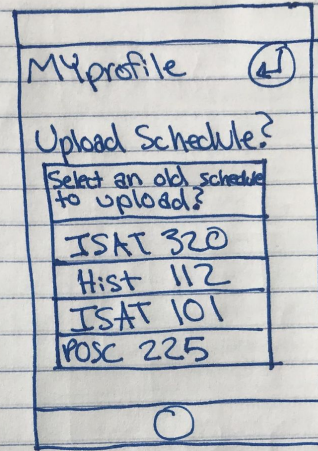 MYprofile
Upload Schedule?
Select an old schedule
to upload?
ISAT 320
Hist 112
ISAT 101
POSC 225